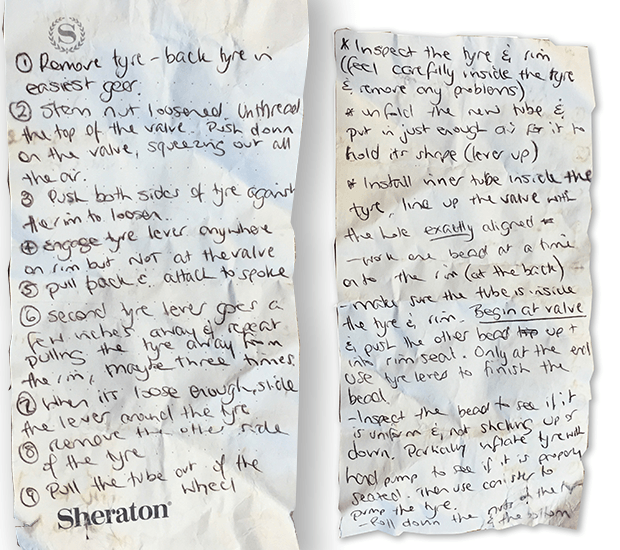 S
① Remove tyre - back tyre in
easiest gear.
② Stem nut loosened. Unthread
the top of the valve. Push down
on the valve, squeezing out all
the air.
③ Push both sides of tyre against
the rim to loosen.
④ Engage tyre lever anywhere
on rim but NOT at the valve
⑤ pull back & attach to spoke
⑥ second tyre lever goes a
few inches away & repeat
pulling the tyre away from
the rim, maybe three times
⑦ When its loose enough, slide
the lever around the tyre
⑧ remove the other side
of the tyre
⑨ Pull the tube out of the
wheel
Sheraton
* Inspect the tyre & rim
(feel carefully inside the tyre
& remove any problems)
* unfold the new tube &
put in just enough air for it to
hold its shape (lever up)
* Install inner tube inside the
tyre. line up the valve with
the hole exactly aligned *
- work one bead at a time
on to the rim (at the back)
- make sure the tube is inside
the tyre & rim. Begin at valve
& push the other bead up +
into rim seat. Only at the end
use tyre levers to finish the
bead.
- Inspect the bead to see if it
is uniform & not sticking up or
down. Partially inflate tyre with
hand pump to see if it is properly
seated. Then use canister to
pump the tyre.
- Roll down the nuts of the tyre
& the bottom